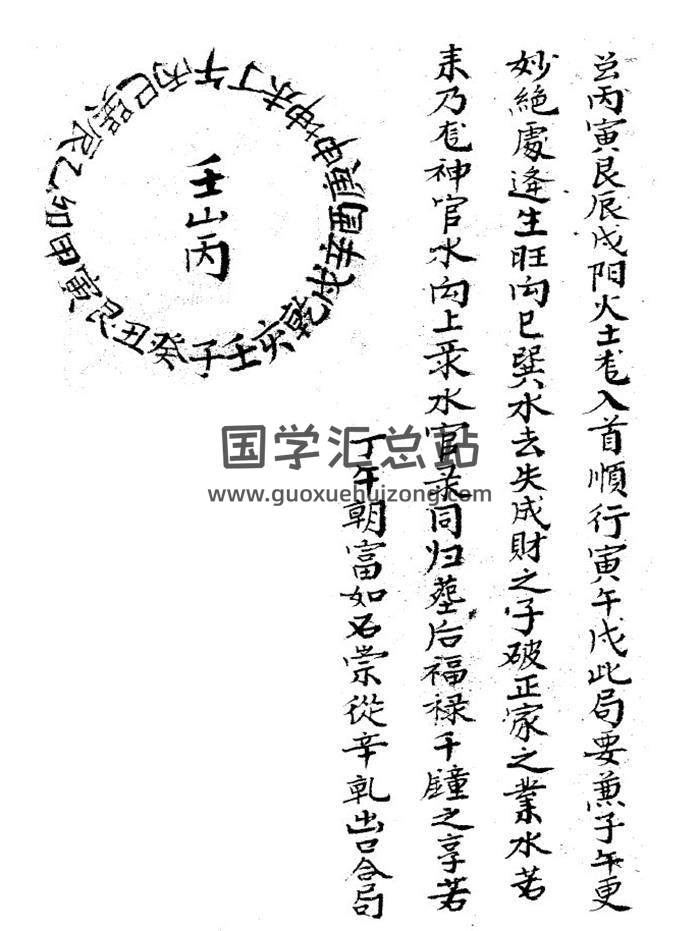 丙寅艮辰戌阳火土龙入首順行寅午戌此局要兼子午更
妙絕處逢生旺向巳巽水去失成財之子破正家之業水若
来乃龙神官水向上录水官录同归墓后福禄千鐘之享若
丁午朝富如石崇從辛乹出口合局
壬山丙
壬子癸丑艮寅甲卯乙辰巽巳丙午丁未坤申庚酉辛戌乾亥
国学汇总站
www.guoxuehuizong.com